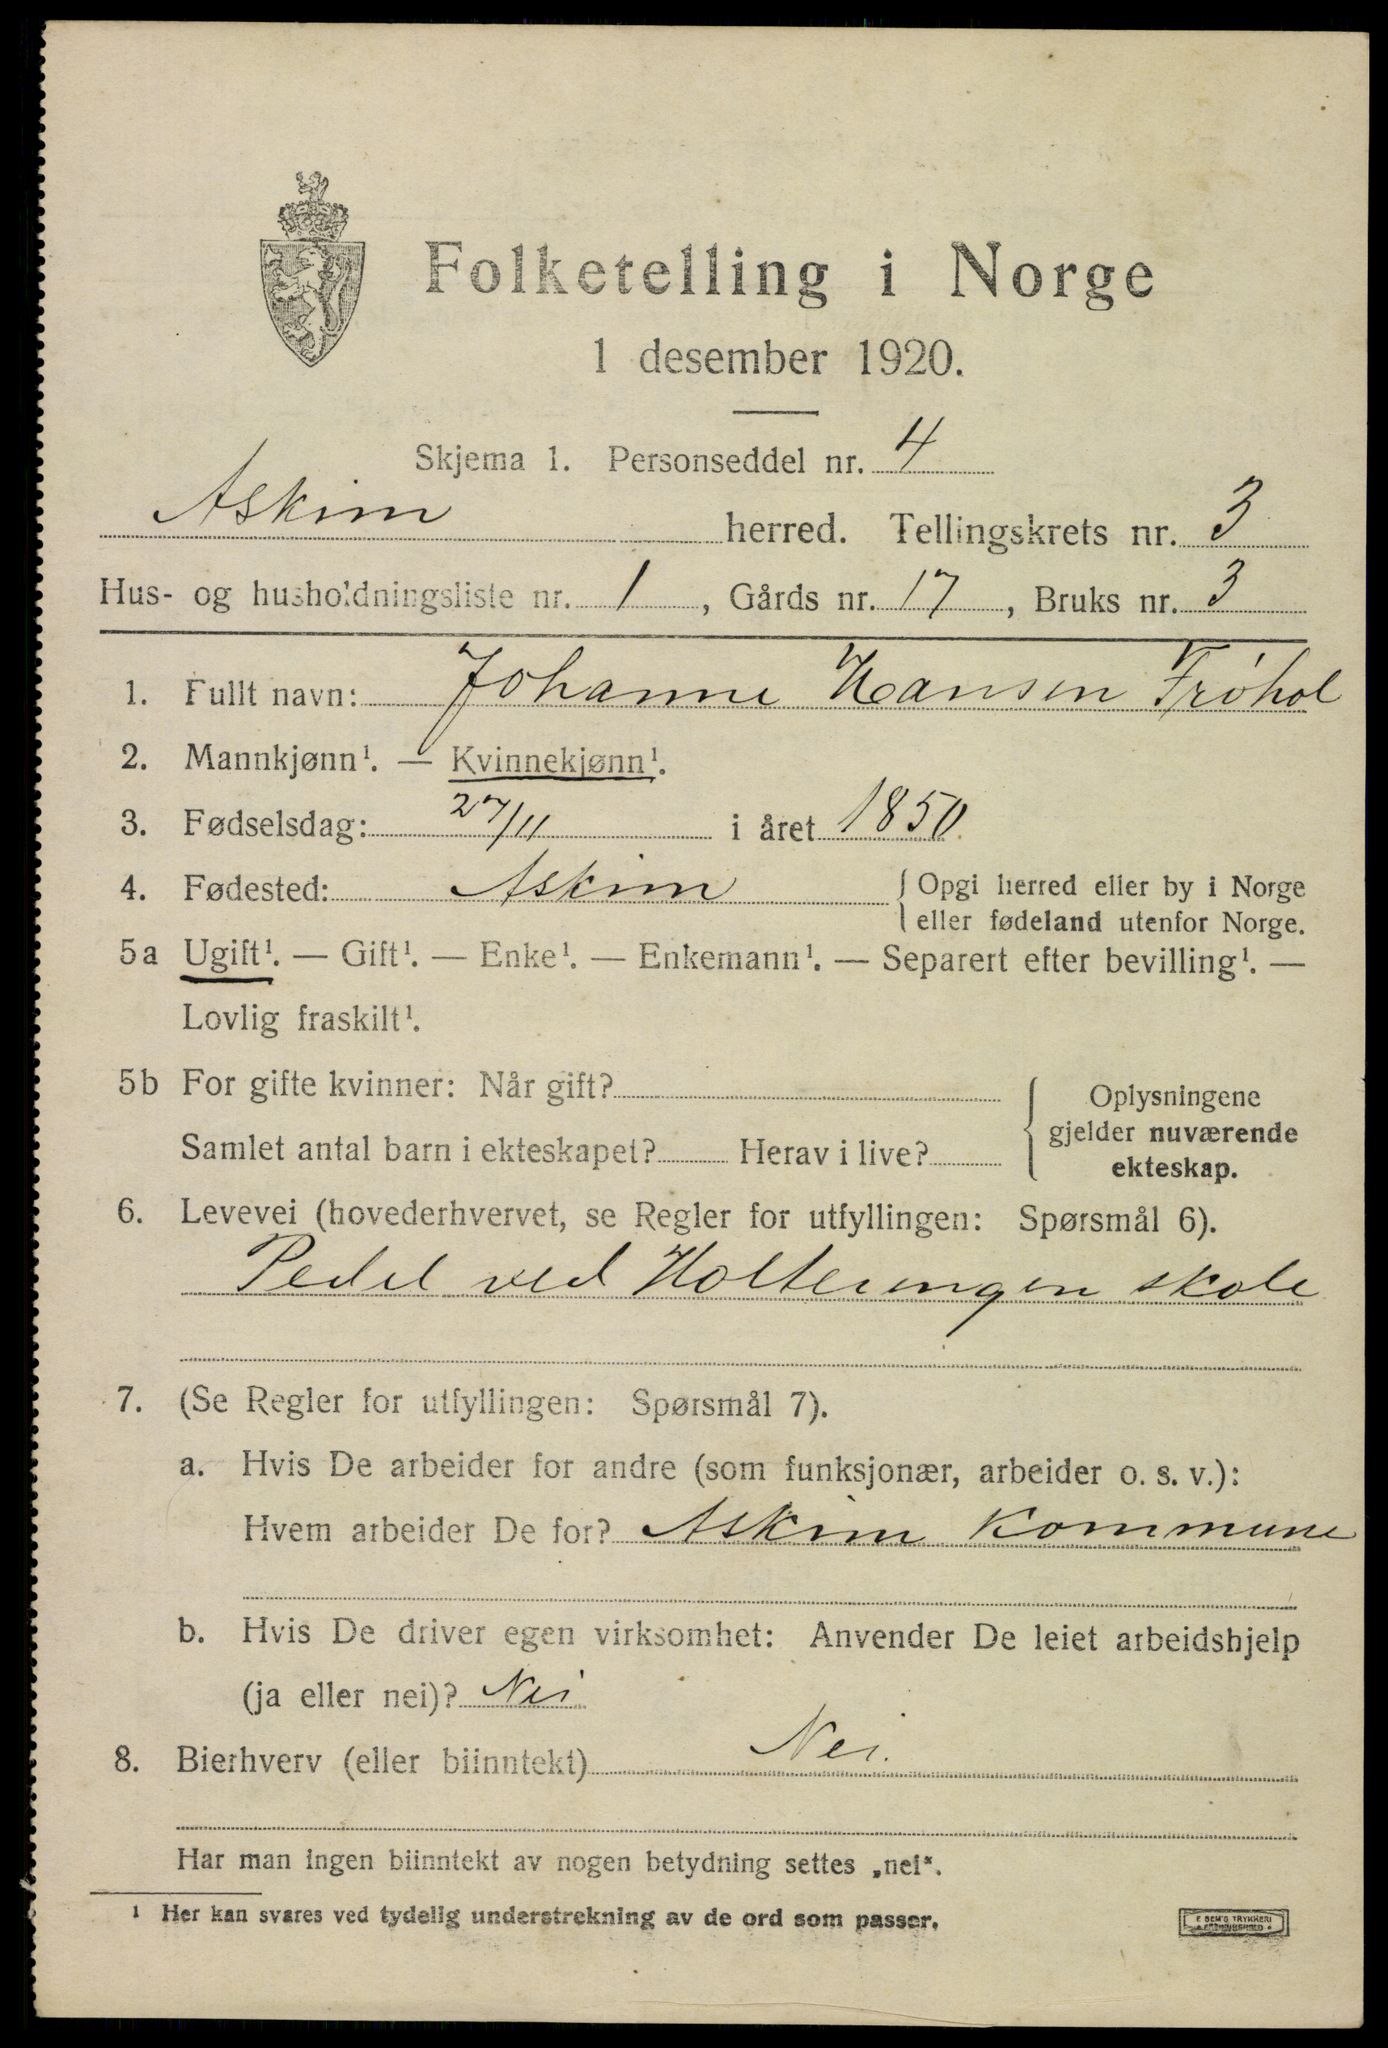 Folketelling i Norge
1 desember 1920.
Skjema 1. Personseddel nr. 4
Askim herred. Tellingskrets nr. 3
Hus- og husholdningsliste nr. 1, Gårds nr. 17, Bruks nr. 3
1. Fullt navn: Johanne Hansen Frøhol
2. Mannkjønn¹. — Kvinnekjønn¹.
3. Fødselsdag: 27/11 i året 1850.
4. Fødested: Askim { Opgi herred eller by i Norge
eller fødeland utenfor Norge.
5a Ugift¹. — Gift¹. — Enke¹. — Enkemann¹. — Separert efter bevilling¹. —
Lovlig fraskilt¹.
5b For gifte kvinner: Når gift?
Samlet antal barn i ekteskapet? Herav i live?
Oplysningene
gjelder nuværende
ekteskap.
6. Levevei (hovederhvervet, se Regler for utfyllingen: Spørsmål 6).
Pedel ved Holterungen skole
7. (Se Regler for utfyllingen: Spørsmål 7).
a. Hvis De arbeider for andre (som funksjonær, arbeider o. s. v.):
Hvem arbeider De for? Askim kommune
b. Hvis De driver egen virksomhet: Anvender De leiet arbeidshjelp
(ja eller nei)? Nei
8. Bierhverv (eller biinntekt) Nei.
Har man ingen biinntekt av nogen betydning settes „nei“.
1 Her kan svares ved tydelig understrekning av de ord som passer.
E SEM'S TRYKKERI